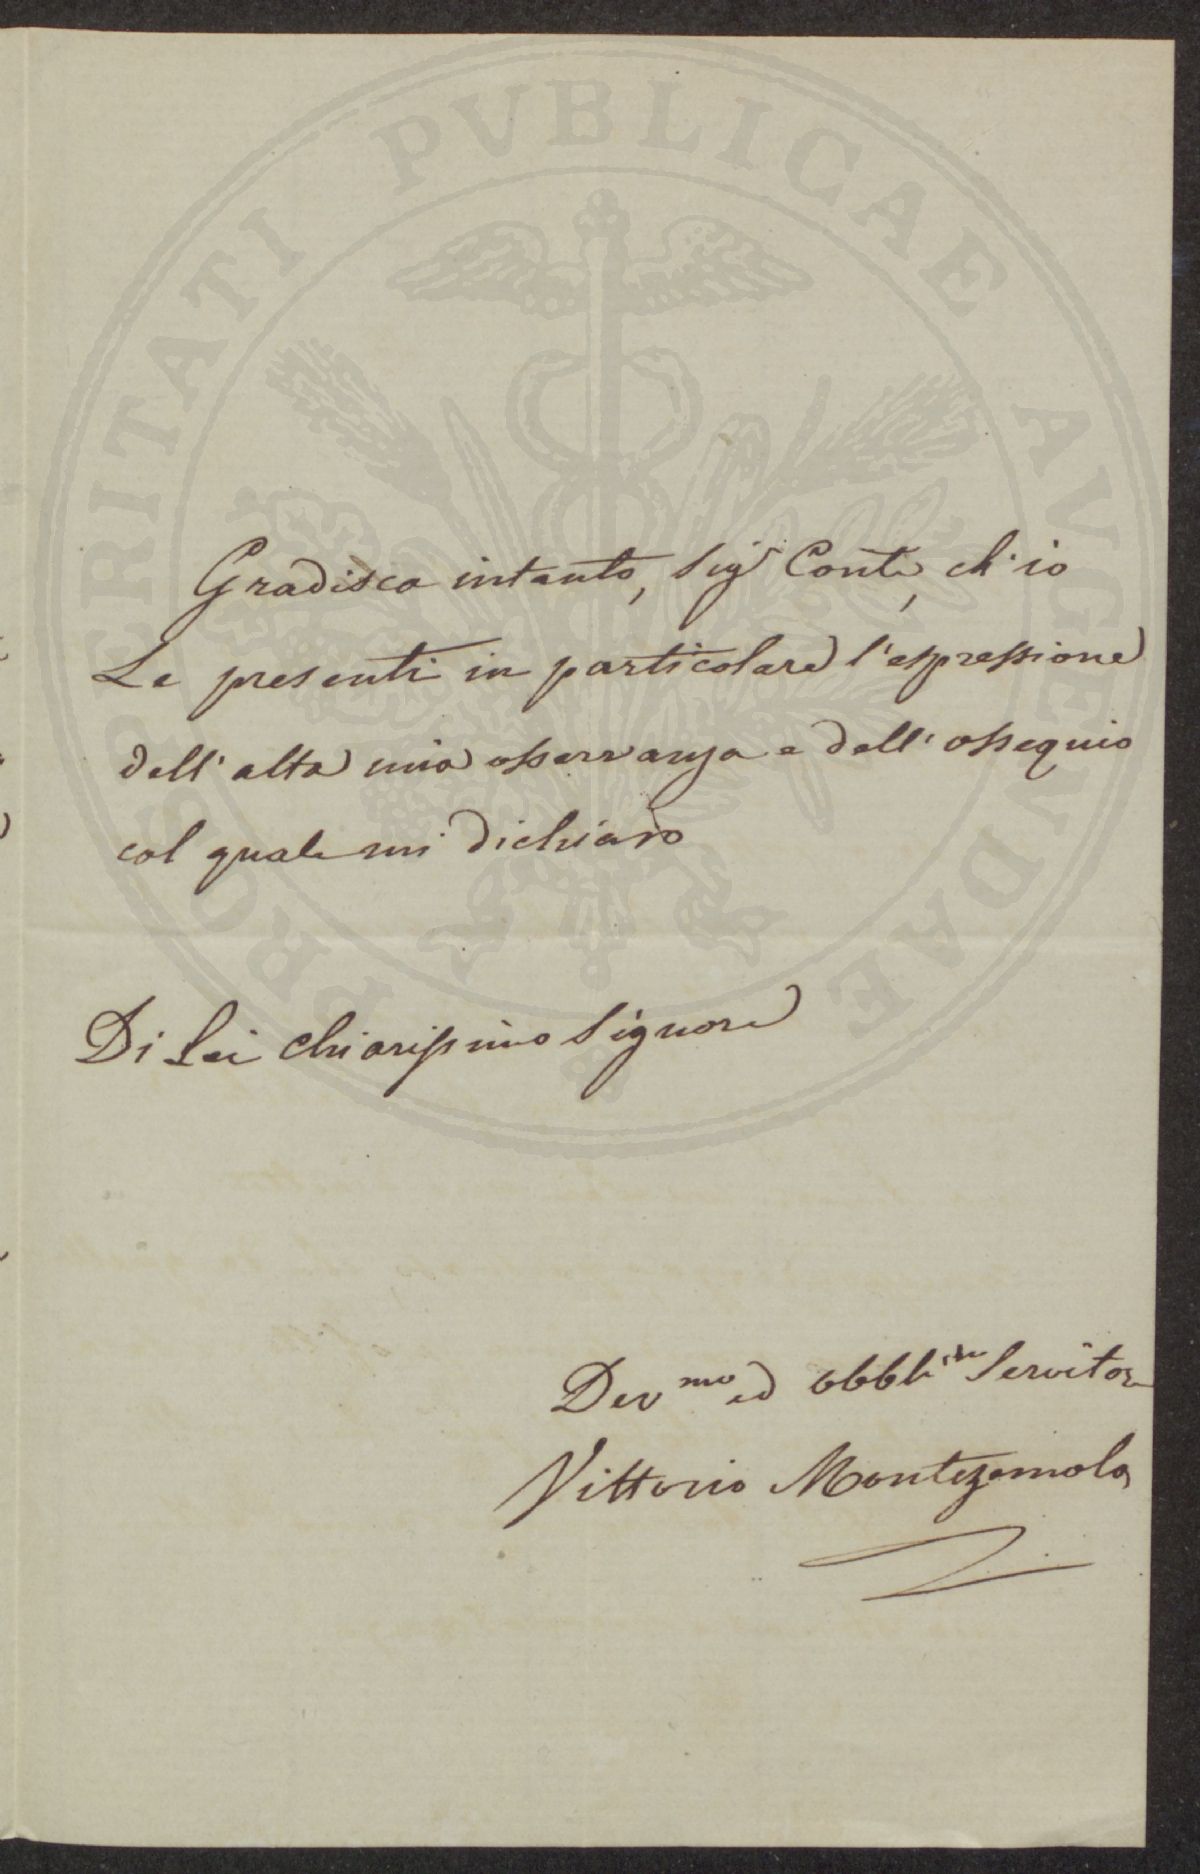 PROSPERITATI PVBLICAE AVGENDAE
Gradisca intanto, Sigr Conte, ch'io
Le presenti in particolare l'espressione
dell'alta mia osservanza e dell'ossequio
col quale mi dichiaro
Di Lei chiarissimo Signore
Devmo ed obbli Servitore
Vittorio Montezemolo